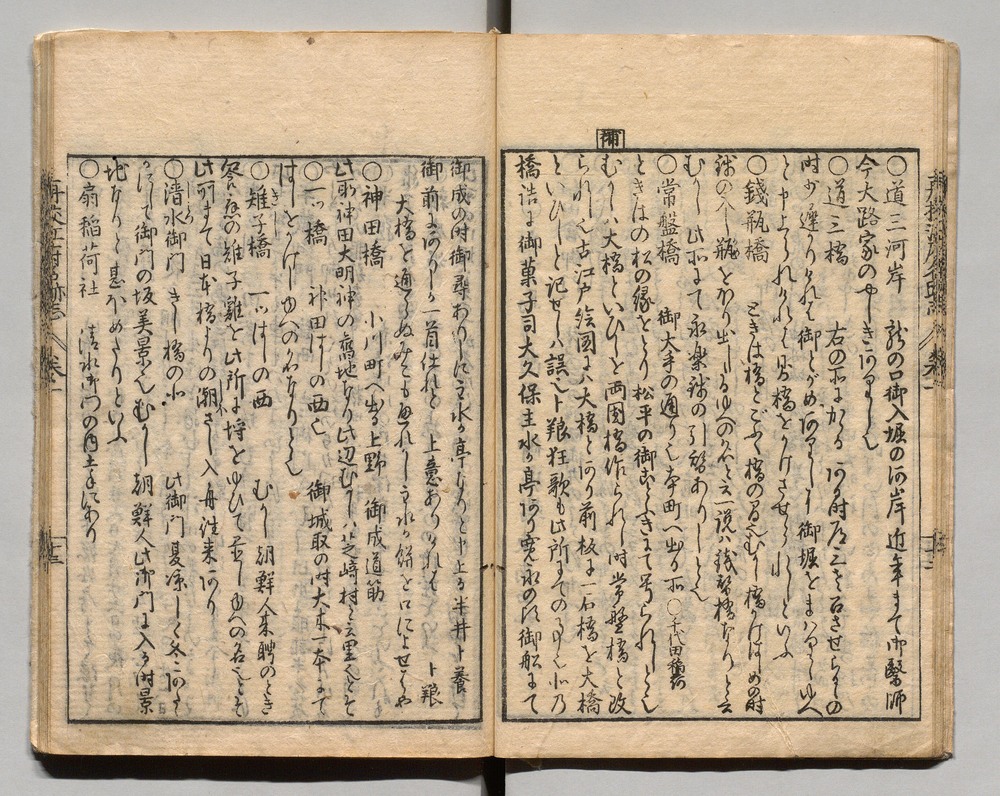 補
○道三河岸 龍の口御入堀の河岸近年まて御醫師
今大路家のやしきありし也
○道三橋 右の所にかゝる ある時道三を召させらるゝの
時少遅りけれは御とがめありしに御堀をまはりしゆへ
と申上られけれは則橋をかけさせられしといふ
○錢瓶橋 ときは橋とごふく橋の間也むかし橋かけはしめの時
銭の入し瓶をほり出しけるゆへの名と云一説ハ銭替橋なりと云
むかし此所にて永楽銭の引替ありしとも
○常盤橋 御大手の通り也本町へ出る所○千代田稲荷
ときはの松の縁をとり松平の御ことふきにて号られしとも
むかしハ大橋といひしを両国橋作られし時常盤橋と改
られし也古江戸絵図に大橋とあり前板に一石橋を大橋
といひしと記せしハ誤也卜養狂歌も此所にての事也
橋詰に御菓子司大久保主水か亭あり寛永の頃御船にて
御成の時御尋ありしに主水か亭なりと申上る半井卜養
御前にありしか一首仕れと 上意ありけれは 卜養
大橋を通らぬみさも
○神田橋 小川町へ出る上野 御成道筋
此所神田大明神の舊地なり此辺むかしハ芝崎村と云里也とそ
○一ッ橋 神田はしの西也 御城取の時大木一本にて
はしをかけしゆへの名なりとも
○雉子橋 一ッはしの西 むかし 朝鮮人来聘のとき
饗應の雉子雞を此所に埒をゆひて置しゆへの名也とそ
此所まて日本橋よりの潮さし入舟往来あり
○清水御門 きし橋の 此御門夏涼しく冬
御門の坂美景也むかし 朝鮮人此御門に入る時景
地なりと甚ほめたりといふ
○扇稲荷社 清水御門の内土手にあり
再校江戸名跡志 巻之一 十三